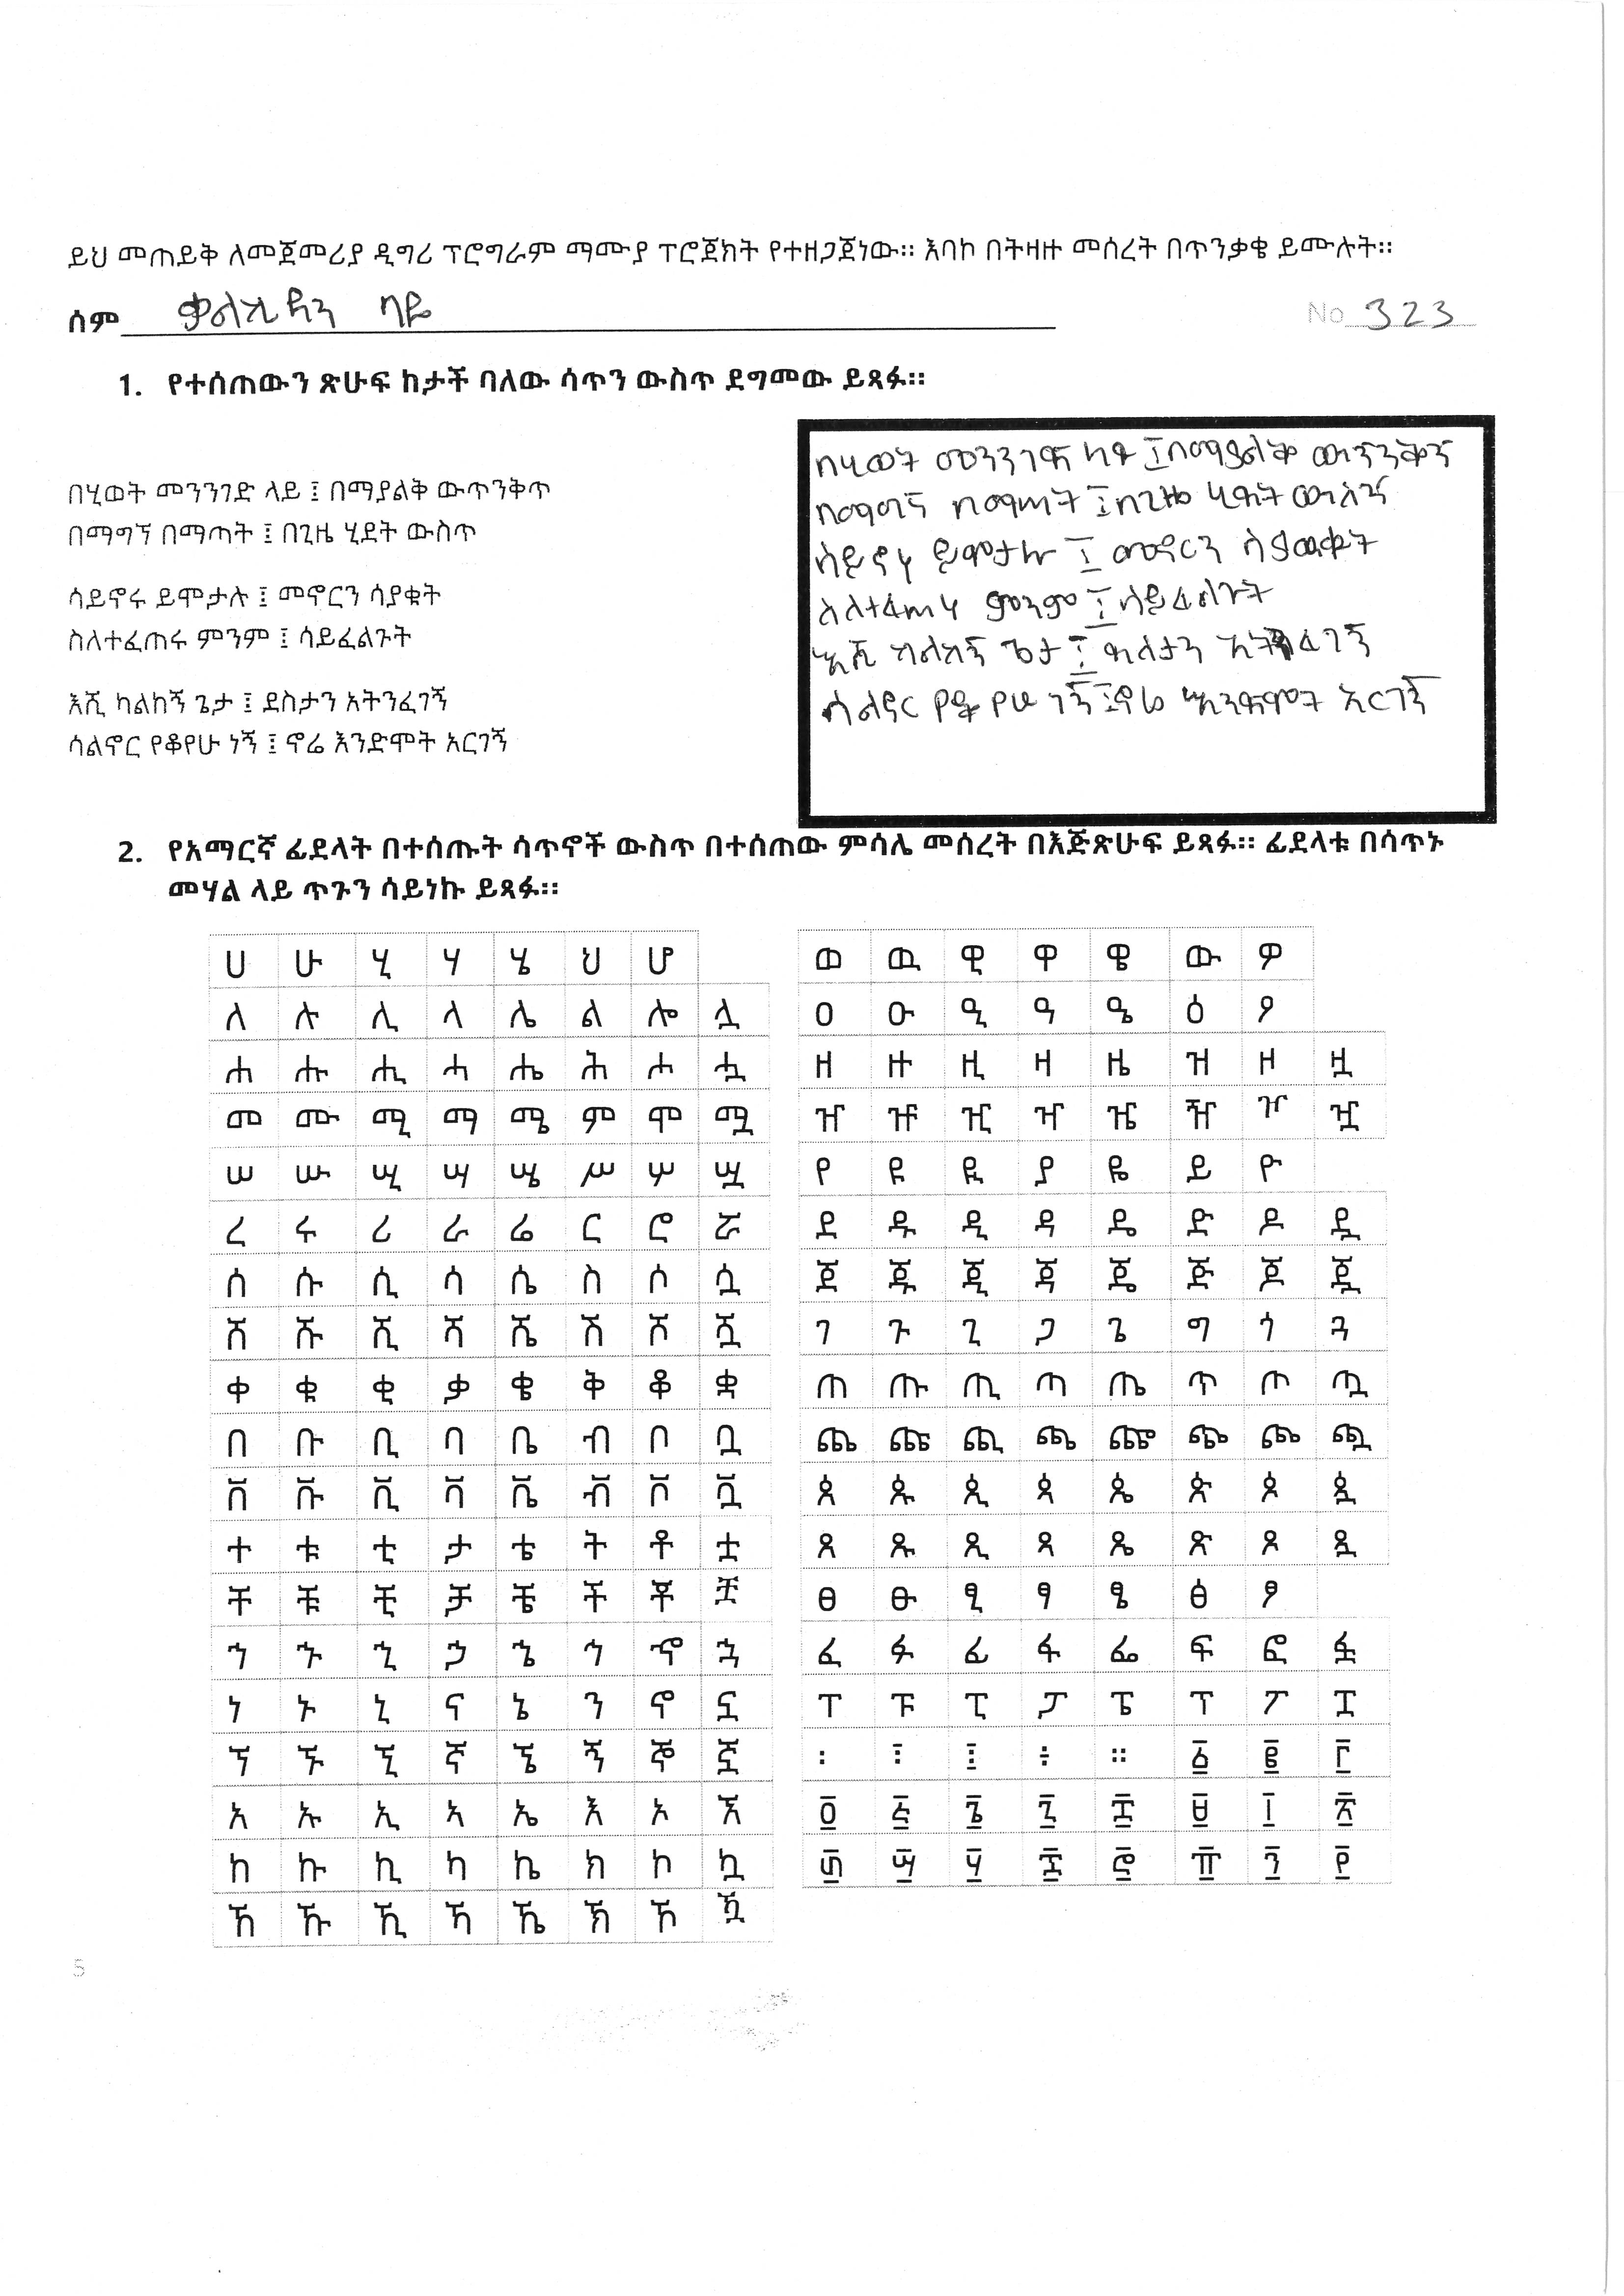 ይህ መጠይቅ ለመጀመሪያ ዲግሪ ፕሮግራም ማሙያ ፕሮጀክት የተዘጋጀነው። እባኮ በትዛዙ መሰረት በጥንቃቄ ይሙሉት።
ስም ቃልኪዳን ባዬ No 323
1. የተሰጠውን ጽሁፍ ከታች ባለው ሳጥን ውስጥ ደግመው ይጻፉ።
በሂወት መንንገድ ላይ ፤ በማያልቅ ውጥንቅጥ
በማግኘ በማጣት ፤ በጊዜ ሂደት ውስጥ
ሳይኖሩ ይሞታሉ ፤ መኖርን ሳያቁት
ስለተፈጠሩ ምንም ፤ ሳይፈልጉት
እሺ ካልከኝ ጌታ ፤ ደስታን አትንፈገኝ
ሳልኖር የቆየሁ ነኝ ፤ ኖሬ እንድሞት አርገኝ
በሂወት መንንገድ ላይ ፤ በማያልቅ ውጥንቅጥ
በማግኘ በማጣት ፤ በጊዜ ሂደት ውስጥ
ሳይኖሩ ይሞታሉ ፤ መኖርን ሳያውቁት
ስለተፈጠሩ ምንም ፤ ሳይፈልጉት
እሺ ካልከኝ ጌታ ፤ ደስታን አትንፈገኝ
ሳልኖር የቆየሁ ነኝ ፤ ኖሬ እንድሞት አርገኝ
2. የአማርኛ ፊደላት በተሰጡት ሳጥኖች ውስጥ በተሰጠው ምሳሌ መሰረት በእጅጽሁፍ ይጻፉ። ፊደላቱ በሳጥኑ
መሃል ላይ ጥጉን ሳይነኩ ይጻፉ።
ሀ ሁ ሂ ሃ ሄ ህ ሆ
ለ ሉ ሊ ላ ሌ ል ሎ ሏ
ሐ ሑ ሒ ሓ ሔ ሕ ሖ ሗ
መ ሙ ሚ ማ ሜ ም ሞ ሟ
ሠ ሡ ሢ ሣ ሤ ሥ ሦ ሧ
ረ ሩ ሪ ራ ሬ ር ሮ ሯ
ሰ ሱ ሲ ሳ ሴ ስ ሶ ሷ
ሸ ሹ ሺ ሻ ሼ ሽ ሾ ሿ
ቀ ቁ ቂ ቃ ቄ ቅ ቆ ቋ
በ ቡ ቢ ባ ቤ ብ ቦ ቧ
ቨ ቩ ቪ ቫ ቬ ቭ ቮ ቯ
ተ ቱ ቲ ታ ቴ ት ቶ ቷ
ቸ ቹ ቺ ቻ ቼ ች ቾ ቿ
ኀ ኁ ኂ ኃ ኄ ኅ ኆ ኋ
ነ ኑ ኒ ና ኔ ን ኖ ኗ
ኘ ኙ ኚ ኛ ኜ ኝ ኞ ኟ
አ ኡ ኢ ኣ ኤ እ ኦ ኧ
ከ ኩ ኪ ካ ኬ ክ ኮ ኳ
ኸ ኹ ኺ ኻ ኼ ኽ ኾ ዃ
ወ ዉ ዊ ዋ ዌ ው ዎ
ዐ ዑ ዒ ዓ ዔ ዕ ዖ
ዘ ዙ ዚ ዛ ዜ ዝ ዞ ዟ
ዠ ዡ ዢ ዣ ዤ ዥ ዦ ዧ
የ ዩ ዪ ያ ዬ ይ ዮ
ደ ዱ ዲ ዳ ዴ ድ ዶ ዷ
ጀ ጁ ጂ ጃ ጄ ጅ ጆ ጇ
ገ ጉ ጊ ጋ ጌ ግ ጎ ጓ
ጠ ጡ ጢ ጣ ጤ ጥ ጦ ጧ
ጨ ጩ ጪ ጫ ጬ ጭ ጮ ጯ
ጰ ጱ ጲ ጳ ጴ ጵ ጶ ጷ
ጸ ጹ ጺ ጻ ጼ ጽ ጾ ጿ
ፀ ፁ ፂ ፃ ፄ ፅ ፆ
ፈ ፉ ፊ ፋ ፌ ፍ ፎ ፏ
ፐ ፑ ፒ ፓ ፔ ፕ ፖ ፗ
፡ ፧ ፤ ÷ ። ፩ ፪ ፫
፬ ፭ ፮ ፯ ፰ ፱ ፲ ፳
፴ ፵ ፶ ፷ ፸ ፹ ፺ ፻
S